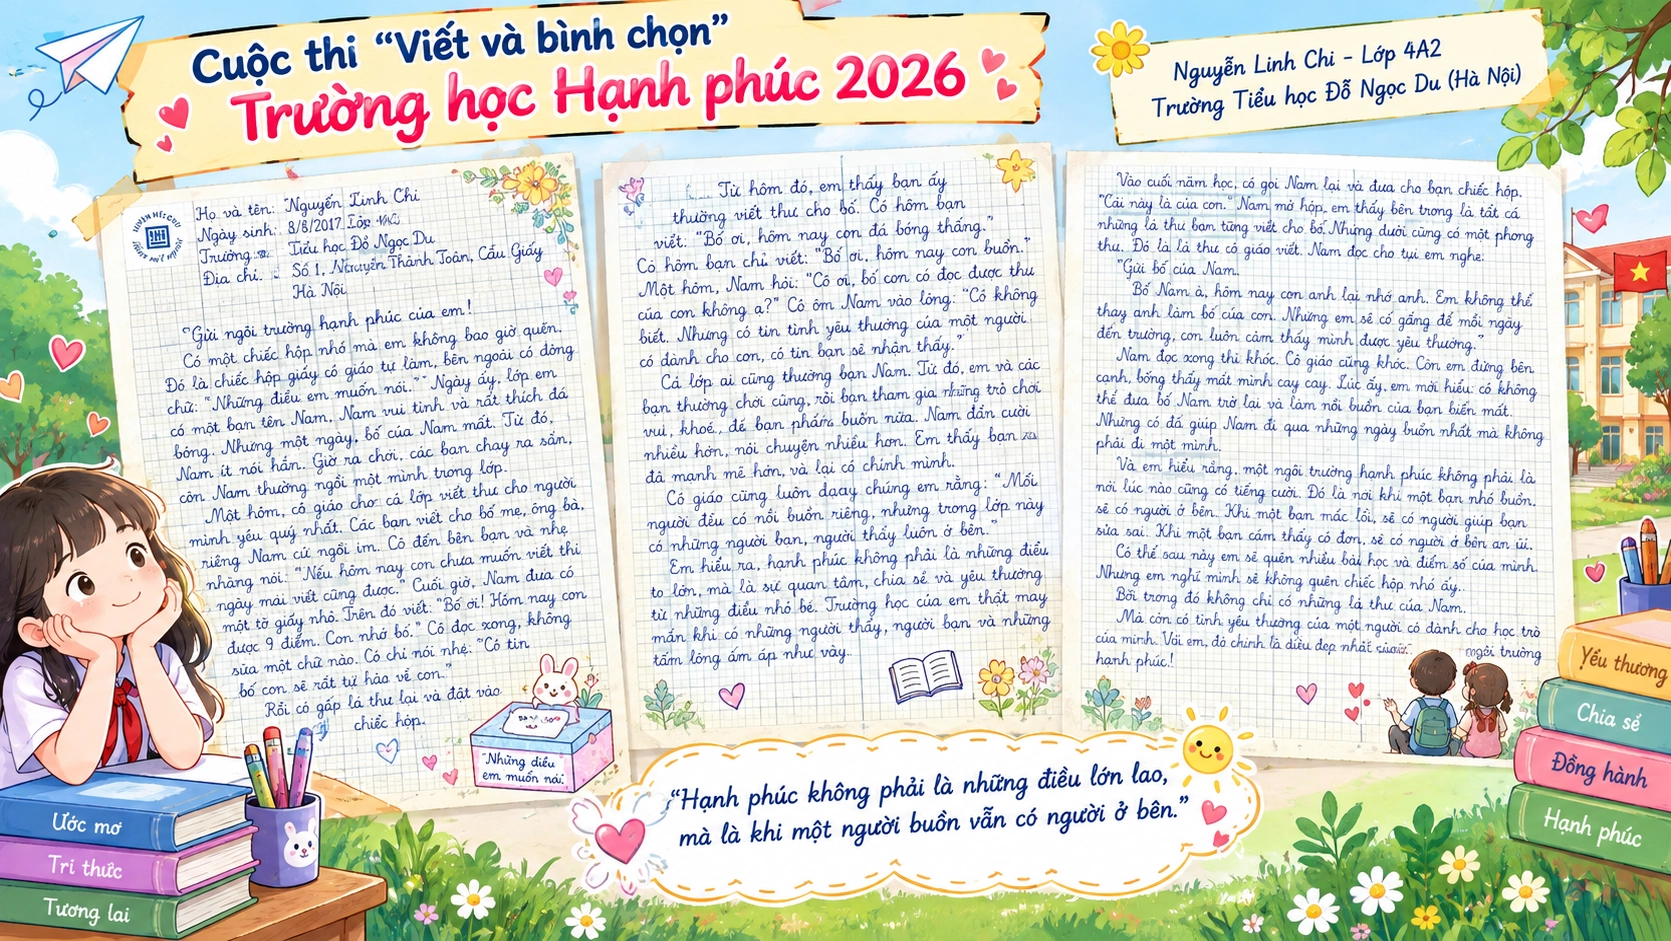 Cuộc thi “Viết và bình chọn”
Trường học Hạnh phúc 2026
Nguyễn Linh Chi - Lớp 4A2
Trường Tiểu học Đỗ Ngọc Du (Hà Nội)
Họ và tên: Nguyễn Linh Chi
Ngày sinh: 8/8/2017 Lớp
Trường: Tiểu học Đỗ Ngọc Du
Địa chỉ: Số 1, Nguyễn Thành Toàn, Cầu Giấy
Hà Nội
"Gửi ngôi trường hạnh phúc của em!
Có một chiếc hộp nhỏ mà em không bao giờ quên.
Đó là chiếc hộp giấy cô giáo tự làm, bên ngoài có dòng
chữ: "Những điều em muốn nói." Ngày ấy, lớp em
có một bạn tên Nam, Nam vui tính và rất thích đá
bóng. Nhưng một ngày, bố của Nam mất. Từ đó,
Nam ít nói hẳn. Giờ ra chơi, các bạn chạy ra sân,
còn Nam thường ngồi một mình trong lớp.
Một hôm, cô giáo cho cả lớp viết thư cho người
mình yêu quý nhất. Các bạn viết cho bố mẹ, ông bà,
riêng Nam cứ ngồi im. Cô đến bên bạn và nhẹ
nhàng nói: "Nếu hôm nay con chưa muốn viết thì
ngày mai viết cũng được." Cuối giờ, Nam đưa cô
một tờ giấy nhỏ. Trên đó viết: "Bố ơi! Hôm nay con
được 9 điểm. Con nhớ bố." Cô đọc xong, không
sửa một chữ nào. Cô chỉ nói nhẹ: "Cô tin
bố con sẽ rất tự hào về con."
Rồi cô gấp lá thư lại và đặt vào
chiếc hộp.
"Những điều
em muốn nói."
Từ hôm đó, em thấy bạn ấy
thường viết thư cho bố. Có hôm bạn
viết: "Bố ơi, hôm nay con đá bóng thắng."
Có hôm bạn chỉ viết: "Bố ơi, hôm nay con buồn."
Một hôm, Nam hỏi: "Cô ơi, bố con có đọc được thư
của con không ạ?" Cô ôm Nam vào lòng: "Cô không
biết. Nhưng cô tin tình yêu thương của một người
cô dành cho con, cô tin bạn sẽ nhận thấy."
Cả lớp ai cũng thương bạn Nam. Từ đó, em và các
bạn thường chơi cùng, rồi bạn tham gia những trò chơi
vui, khoẻ, để bạn buồn nữa. Nam dần cười
nhiều hơn, nói chuyện nhiều hơn. Em thấy bạn
đã mạnh mẽ hơn, và lại có chính mình.
Cô giáo cũng luôn dạy chúng em rằng: "Mỗi
người đều có nỗi buồn riêng, nhưng trong lớp này
có những người bạn, người thầy luôn ở bên."
Em hiểu ra, hạnh phúc không phải là những điều
to lớn, mà là sự quan tâm, chia sẻ và yêu thương
từ những điều nhỏ bé. Trường học của em thật may
mắn khi có những người thầy, người bạn và những
tấm lòng ấm áp như vậy.
Vào cuối năm học, cô gọi Nam lại và đưa cho bạn chiếc hộp.
"Cái này là của con." Nam mở hộp, em thấy bên trong là tất cả
những lá thư bạn từng viết cho bố. Nhưng dưới cùng có một phong
thư. Đó là lá thư cô giáo viết. Nam đọc cho tụi em nghe:
"Gửi bố của Nam.
Bố Nam à, hôm nay con anh lại nhớ anh. Em không thể
thay anh làm bố của con. Nhưng em sẽ cố gắng để mỗi ngày
đến trường, con luôn cảm thấy mình được yêu thương."
Nam đọc xong thì khóc. Cô giáo cũng khóc. Còn em đứng bên
cạnh, bỗng thấy mắt mình cay cay. Lúc ấy, em mới hiểu: cô không
thể đưa bố Nam trở lại và làm nỗi buồn của bạn biến mất.
Nhưng cô đã giúp Nam đi qua những ngày buồn nhất mà không
phải đi một mình.
Và em hiểu rằng, một ngôi trường hạnh phúc không phải là
nơi lúc nào cũng có tiếng cười. Đó là nơi khi một bạn nhỏ buồn,
sẽ có người ở bên. Khi một bạn mắc lỗi, sẽ có người giúp bạn
sửa sai. Khi một bạn cảm thấy cô đơn, sẽ có người ở bên an ủi.
Có thể sau này em sẽ quên nhiều bài học và điểm số của mình.
Nhưng em nghĩ mình sẽ không quên chiếc hộp nhỏ ấy.
Bởi trong đó không chỉ có những lá thư của Nam.
Mà còn có tình yêu thương của một người cô dành cho học trò
của mình. Với em, đó chính là điều đẹp nhất ngôi trường
hạnh phúc!
“Hạnh phúc không phải là những điều lớn lao,
mà là khi một người buồn vẫn có người ở bên.”
Ước mơ
Tri thức
Tương lai
Yêu thương
Chia sẻ
Đồng hành
Hạnh phúc